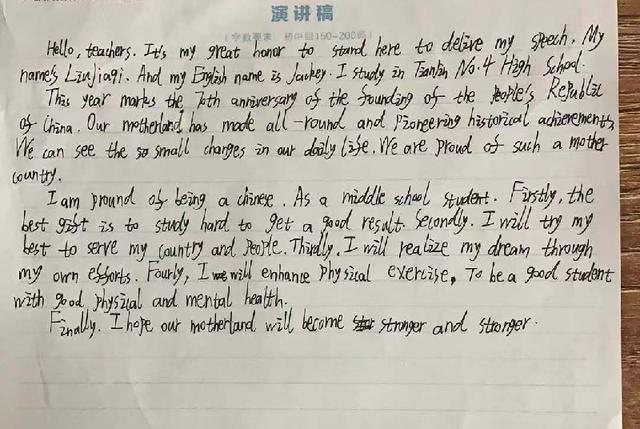 演讲稿
(字数要求 初中组150-200词)
Hello, teachers. It's my great honor to stand here to delive my speech. My
name's Liujiaqi. And my English name is Jackey. I study in Tianjin No.4 High School.
This year marks the 70th anniversary of the founding of the people's Republic
of China. Our motherland has made all-round and pioneering historical achievements,
We can see the so small changes in our daily life. We are proud of such a mother
country.
I am pround of being a chinese. As a middle school student. Firstly, the
best gift is to study hard to get a good result. Secondly. I will try my
best to serve my country and people. Thirdly. I will realize my dream through
my own efforts. Fourly, I will enhance physical exercise, To be a good student
with good physical and mental health.
Finally. I hope our motherland will become stronger and stronger.